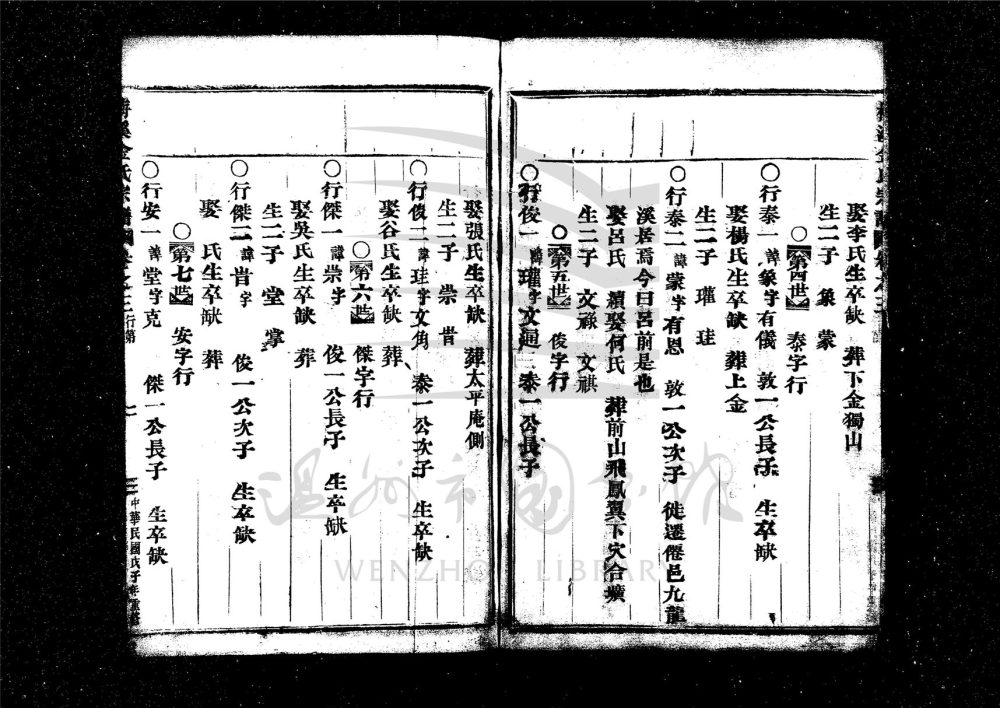 娶李氏生卒缺 葬下金獨山
生二子 象 蒙
○第四世 泰字行
○行泰一諱象字有儀 敦一公長子 生卒缺
娶楊氏生卒缺 葬上金
生二子 瓘 珪
○行泰二諱蒙字有恩 敦一公次子 徙遷僊邑九龍
溪居焉今曰呂前是也
娶呂氏 續娶何氏 葬前山飛鳳翼下穴合壙
生二子 文祿 文祺
○第五世 俊字行
○行俊一諱瓘字文廻 泰一公長子
娶張氏生卒缺 葬太平庵側
生二子 崇 旹
○行俊二諱珪字文角 泰一公次子 生卒缺
娶谷氏生卒缺 葬
○第六世 傑字行
○行傑一諱崇字 俊一公長子 生卒缺
娶吳氏生卒缺 葬
生二子 堂 掌
○行傑二諱旹字 俊一公次子 生卒缺
娶 氏生卒缺 葬
○第七世 安字行
○行安一諱堂字克 傑一公長子 生卒缺
溪金氏宗譜 卷之三 行第 中華民國 子年重修
WENZHOU LIBRARY